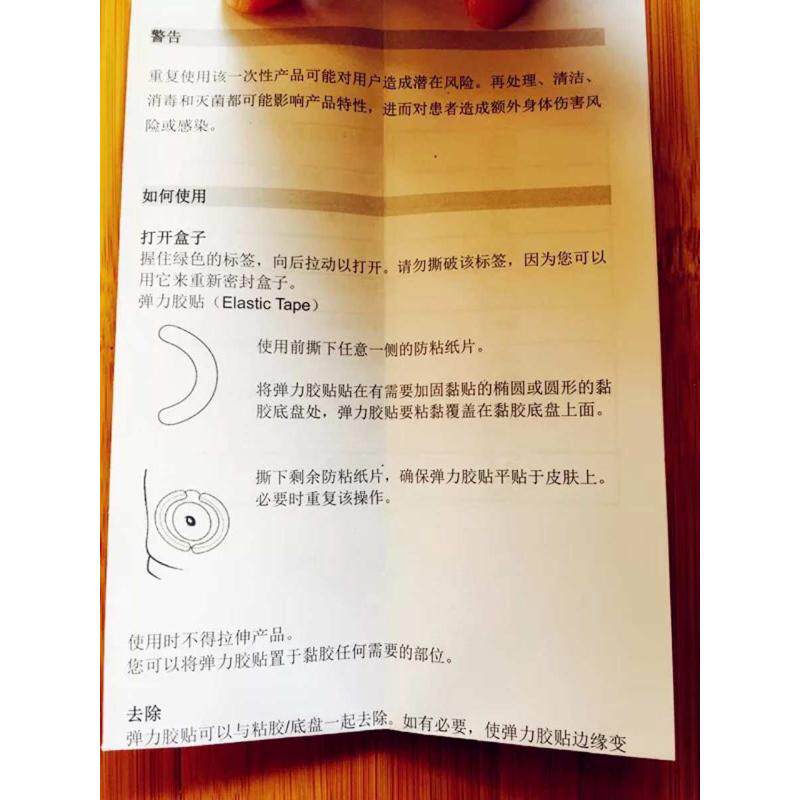 警告
重复使用该一次性产品可能对用户造成潜在风险。再处理、清洁、
消毒和灭菌都可能影响产品特性，进而对患者造成额外身体伤害风
险或感染。
如何使用
打开盒子
握住绿色的标签，向后拉动以打开。请勿撕破该标签，因为您可以
用它来重新密封盒子。
弹力胶贴（Elastic Tape）
使用前撕下任意一侧的防粘纸片。
将弹力胶贴贴在有需要加固黏贴的椭圆或圆形的黏
胶底盘处，弹力胶贴要粘黏覆盖在黏胶底盘上面。
撕下剩余防粘纸片，确保弹力胶贴平贴于皮肤上。
必要时重复该操作。
使用时不得拉伸产品。
您可以将弹力胶贴置于黏胶任何需要的部位。
去除
弹力胶贴可以与粘胶/底盘一起去除。如有必要，使弹力胶贴边缘变